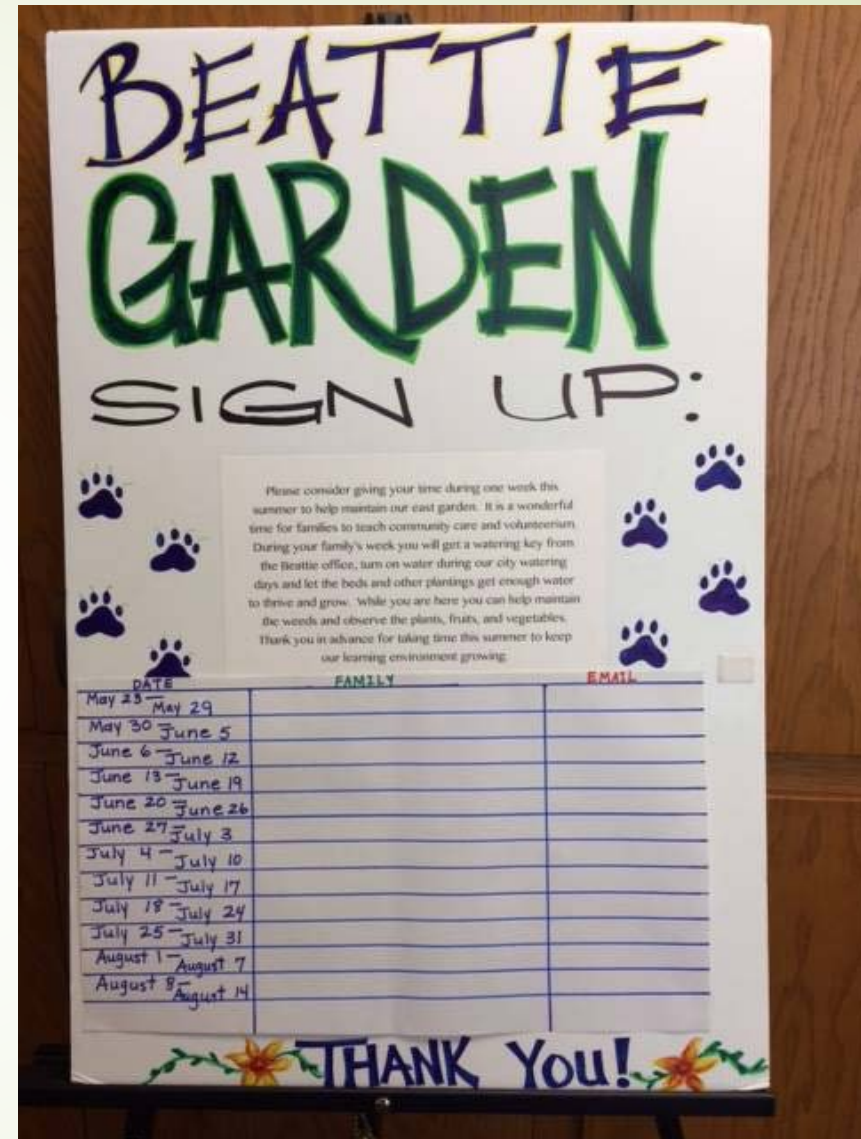 BEATTIE
GARDEN
SIGN UP:
Please consider giving your time during one week this
summer to help maintain our east garden. It is a wonderful
time for families to teach community care and volunteerism.
During your family's week you will get a watering key from
the Beattie office, turn on water during our city watering
days and let the beds and other plantings get enough water
to thrive and grow. While you are here you can help maintain
the weeds and observe the plants, fruits, and vegetables.
Thank you in advance for taking time this summer to keep
our learning environment growing.
DATE FAMILY EMAIL
May 23 - May 29
May 30 - June 5
June 6 - June 12
June 13 - June 19
June 20 - June 26
June 27 - July 3
July 4 - July 10
July 11 - July 17
July 18 - July 24
July 25 - July 31
August 1 - August 7
August 8 - August 14
THANK YOU!